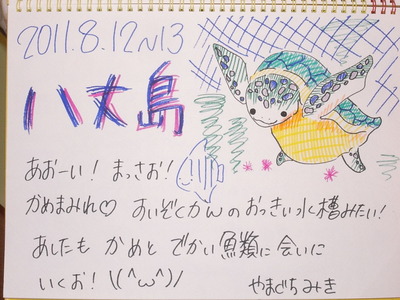 2011.8.12~13
八丈島
あおーい！まっさお！
かめまみれ♡ すいぞくかんのおっきい水槽みたい！
あしたも かめと でかい魚類に会いに
いくお！\\(^ω^)/
やまぐちみき